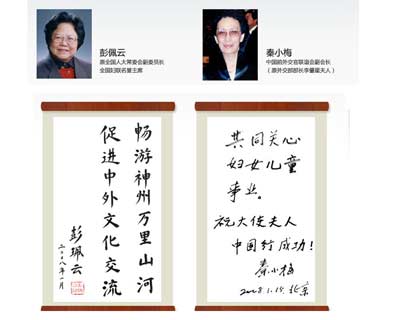 彭佩云
原全国人大常委会副委员长
全国妇联名誉主席
秦小梅
中国前外交官联谊会副会长
（原外交部部长李肇星夫人）
畅游神州万里山河
促进中外文化交流
彭珮云
二〇〇八年一月
共同关心
妇女儿童
事业。
祝大使夫人
中国行成功！
秦小梅
2008.1.15.北京